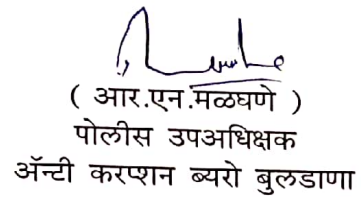 ( आर.एन.मळघणे )
पोलीस उपअधिक्षक
ॲन्टी करप्शन ब्यरो बुलडाणा